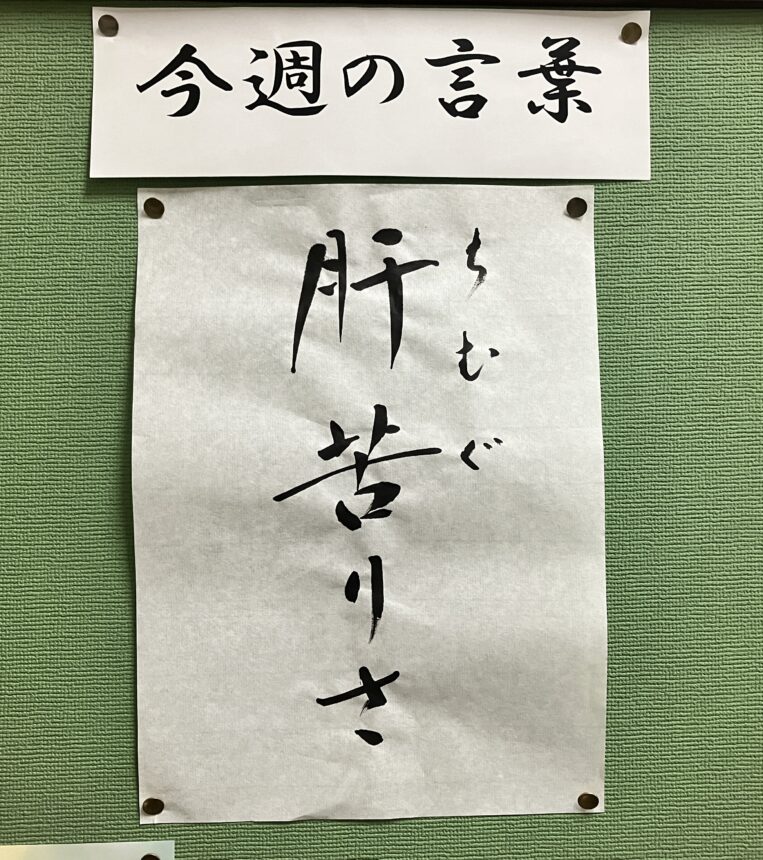 今週の言葉
ちむぐ
肝苦りさ